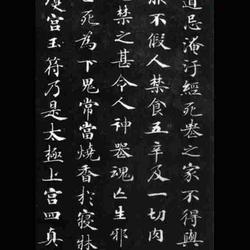 道忌淹汙經死喪之家不得與
服不假人禁食五辛及一切肉
禁之甚令人神喪魂亡生邪
死為下鬼常當燒香於寢牀
瓊宮玉符乃是太極上宮四真